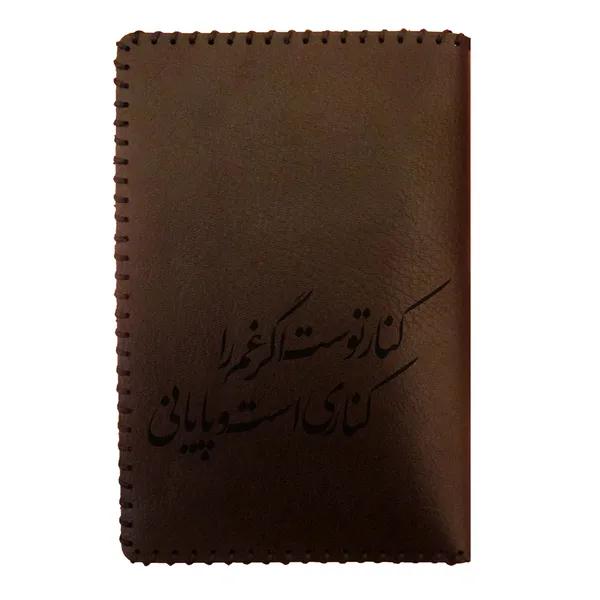 کنار توست اگر غم را
کناری است و پایانی